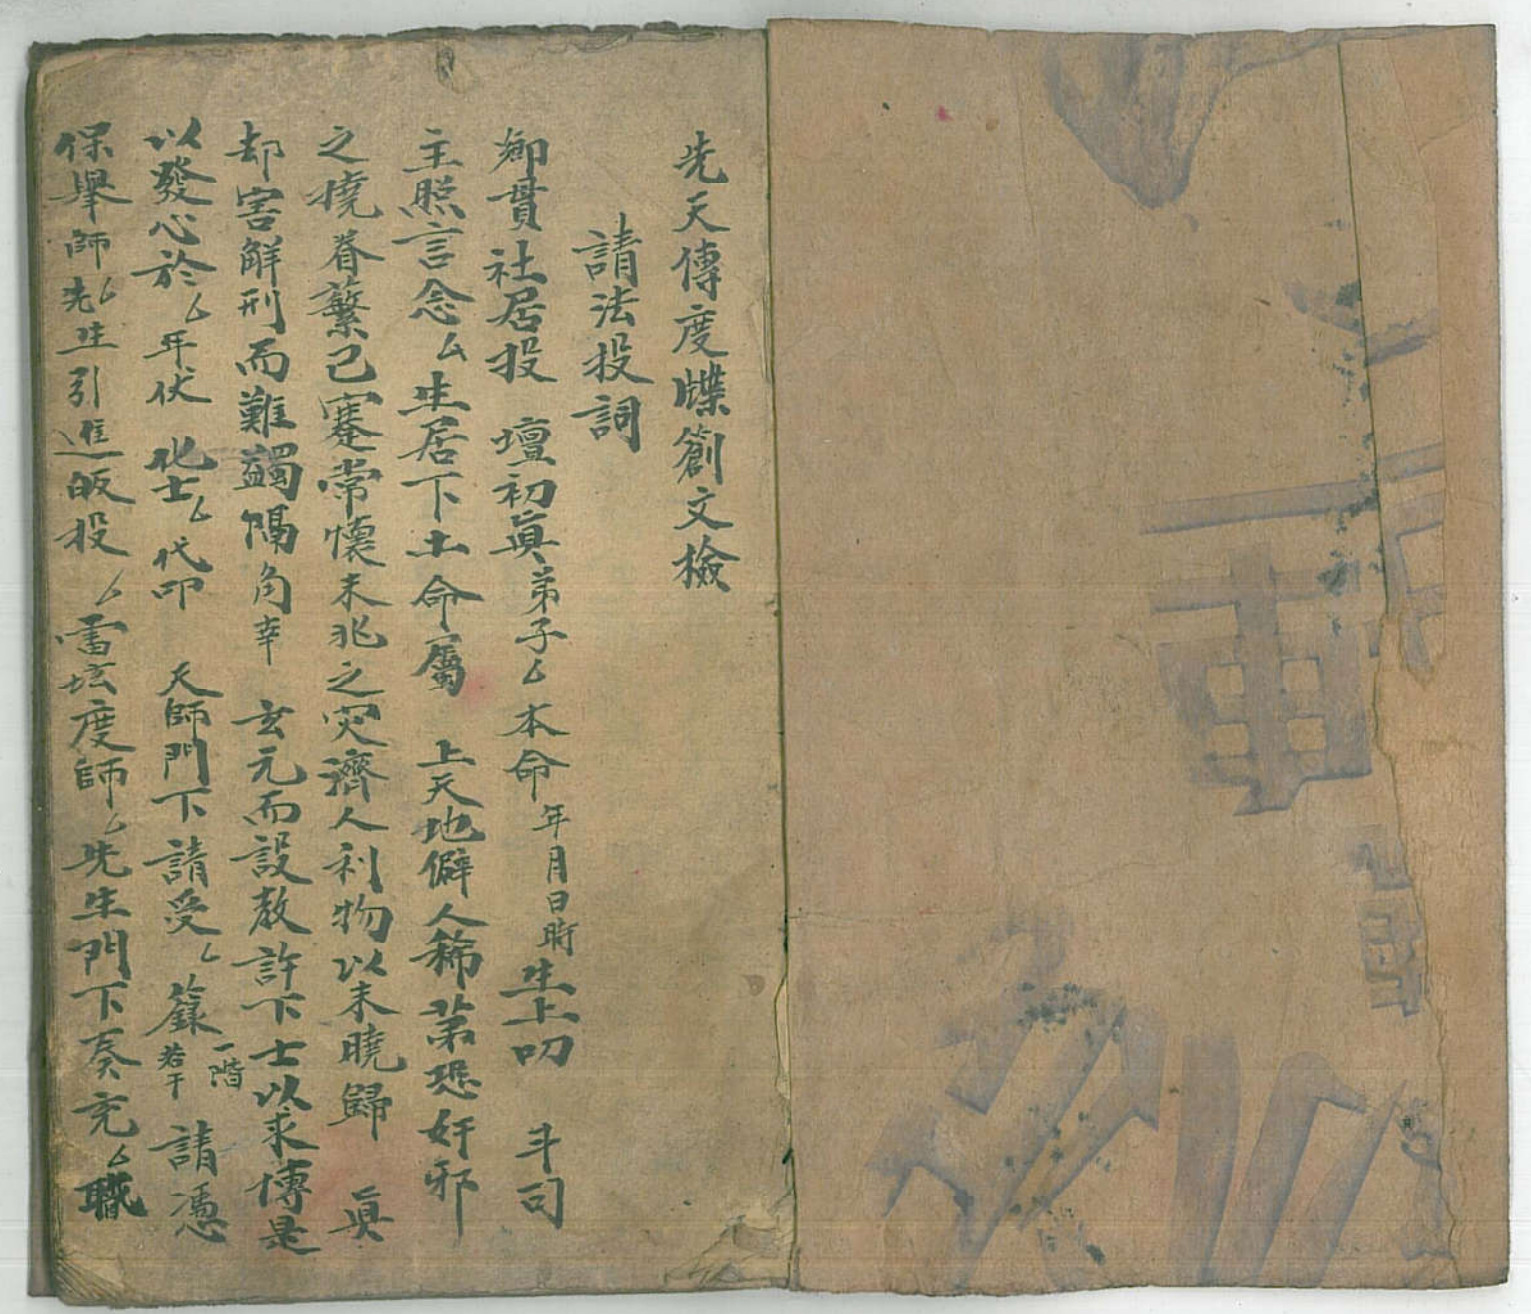 先天傳度牒劄文檢
請法投詞
鄉貫社居投 壇初眞弟子厶本命年月日時生上叩 斗司
主照言念厶生居下土命屬 上天地僻人稀第恐奸邪
之撓眷蘩己蹇常懷未兆之災濟人利物以未曉歸 眞
却害解刑而難蠲隔角幸 玄元而設教許下士以求傳是
以發心於厶年伏 化士厶代叩 天師門下請受厶籙一階若干 請憑
保舉師厶先生引進皈投厶雷坛度師厶先生門下奏充厶職